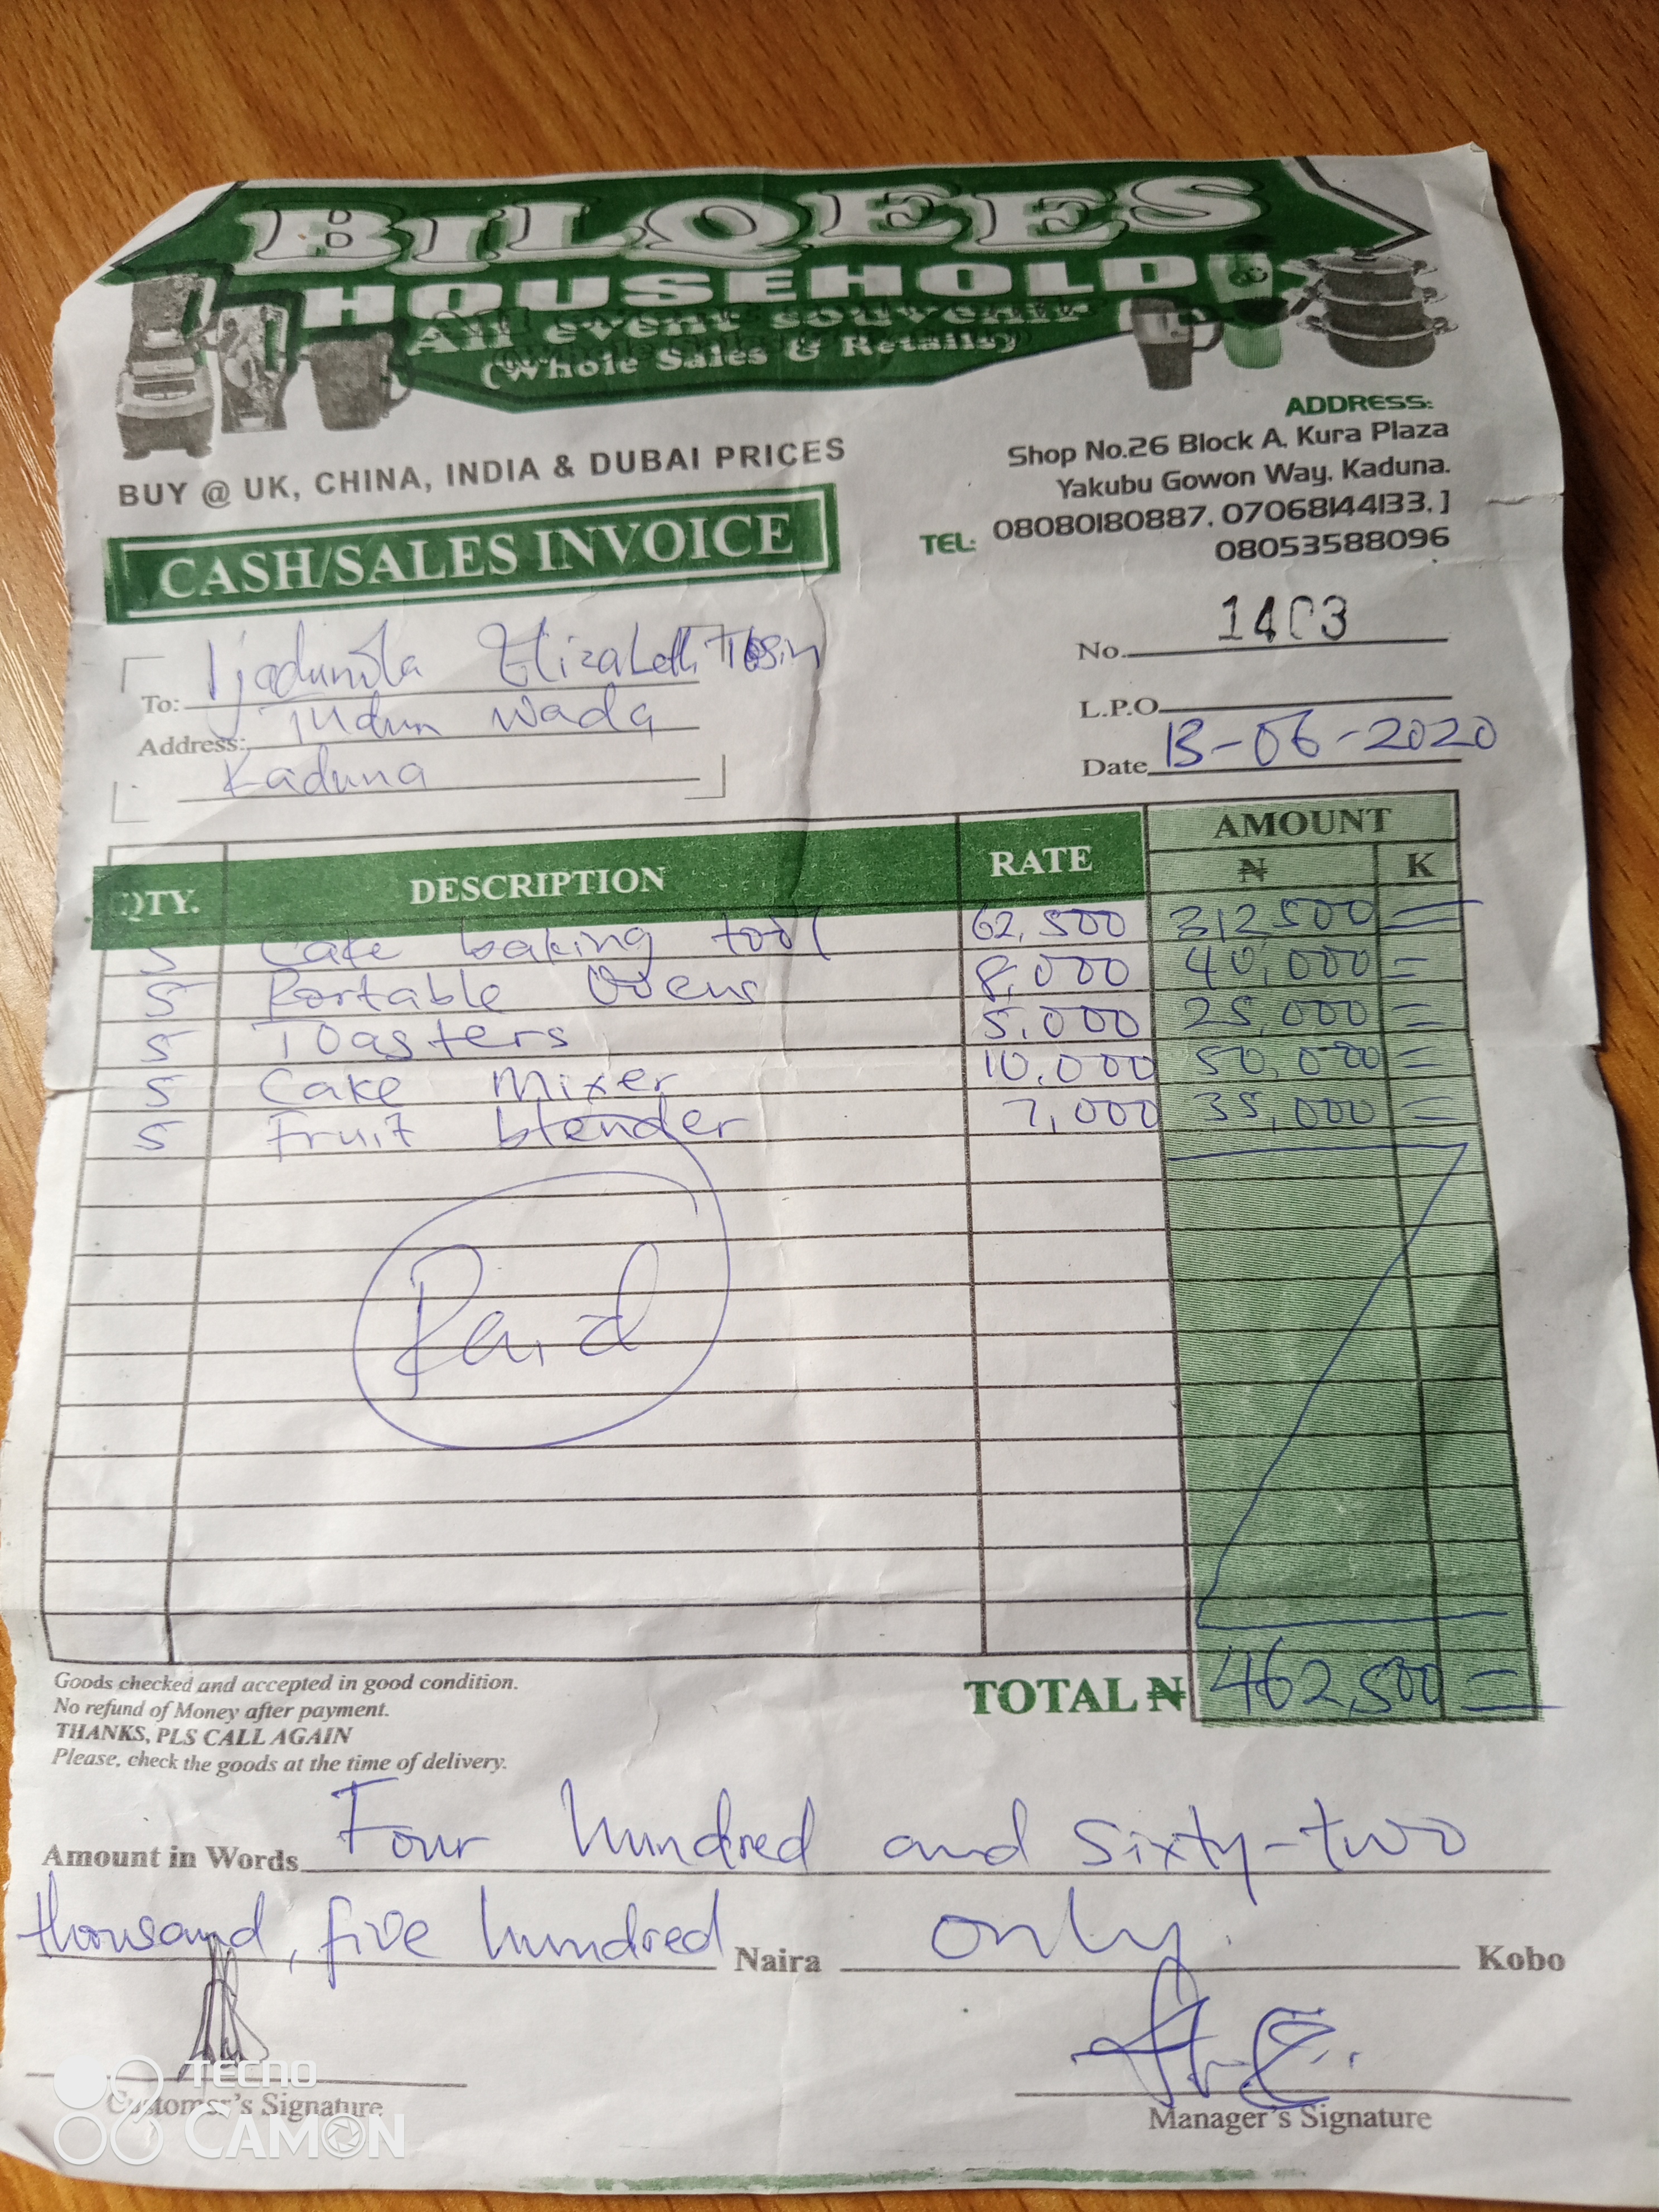 BILQEES
HOUSEHOLD
All event souvenir
(Whole Sales & Retails)
BUY @ UK, CHINA, INDIA & DUBAI PRICES
ADDRESS:
Shop No.26 Block A, Kura Plaza
Yakubu Gowon Way, Kaduna.
TEL: 08080180887, 07068144133, ]
08053588096
CASH/SALES INVOICE
No. 1403
To: Ijadunola Elizabeth Tosin
L.P.O
Address: Tudun Wada
Kaduna
Date 13-06-2020
QTY. DESCRIPTION RATE AMOUNT
₦ K
5 Cake baking tool 62,500 312,500 =
5 Portable Ovens 8,000 40,000 =
5 Toasters 5,000 25,000 =
5 Cake Mixer 10,000 50,000 =
5 Fruit blender 7,000 35,000 =
Paid
TOTAL ₦ 462,500 =
Goods checked and accepted in good condition.
No refund of Money after payment.
THANKS, PLS CALL AGAIN
Please, check the goods at the time of delivery.
Amount in Words Four hundred and sixty-two
thousand, five hundred Naira only. Kobo
Customer's Signature
Manager's Signature
TECNO
CAMON